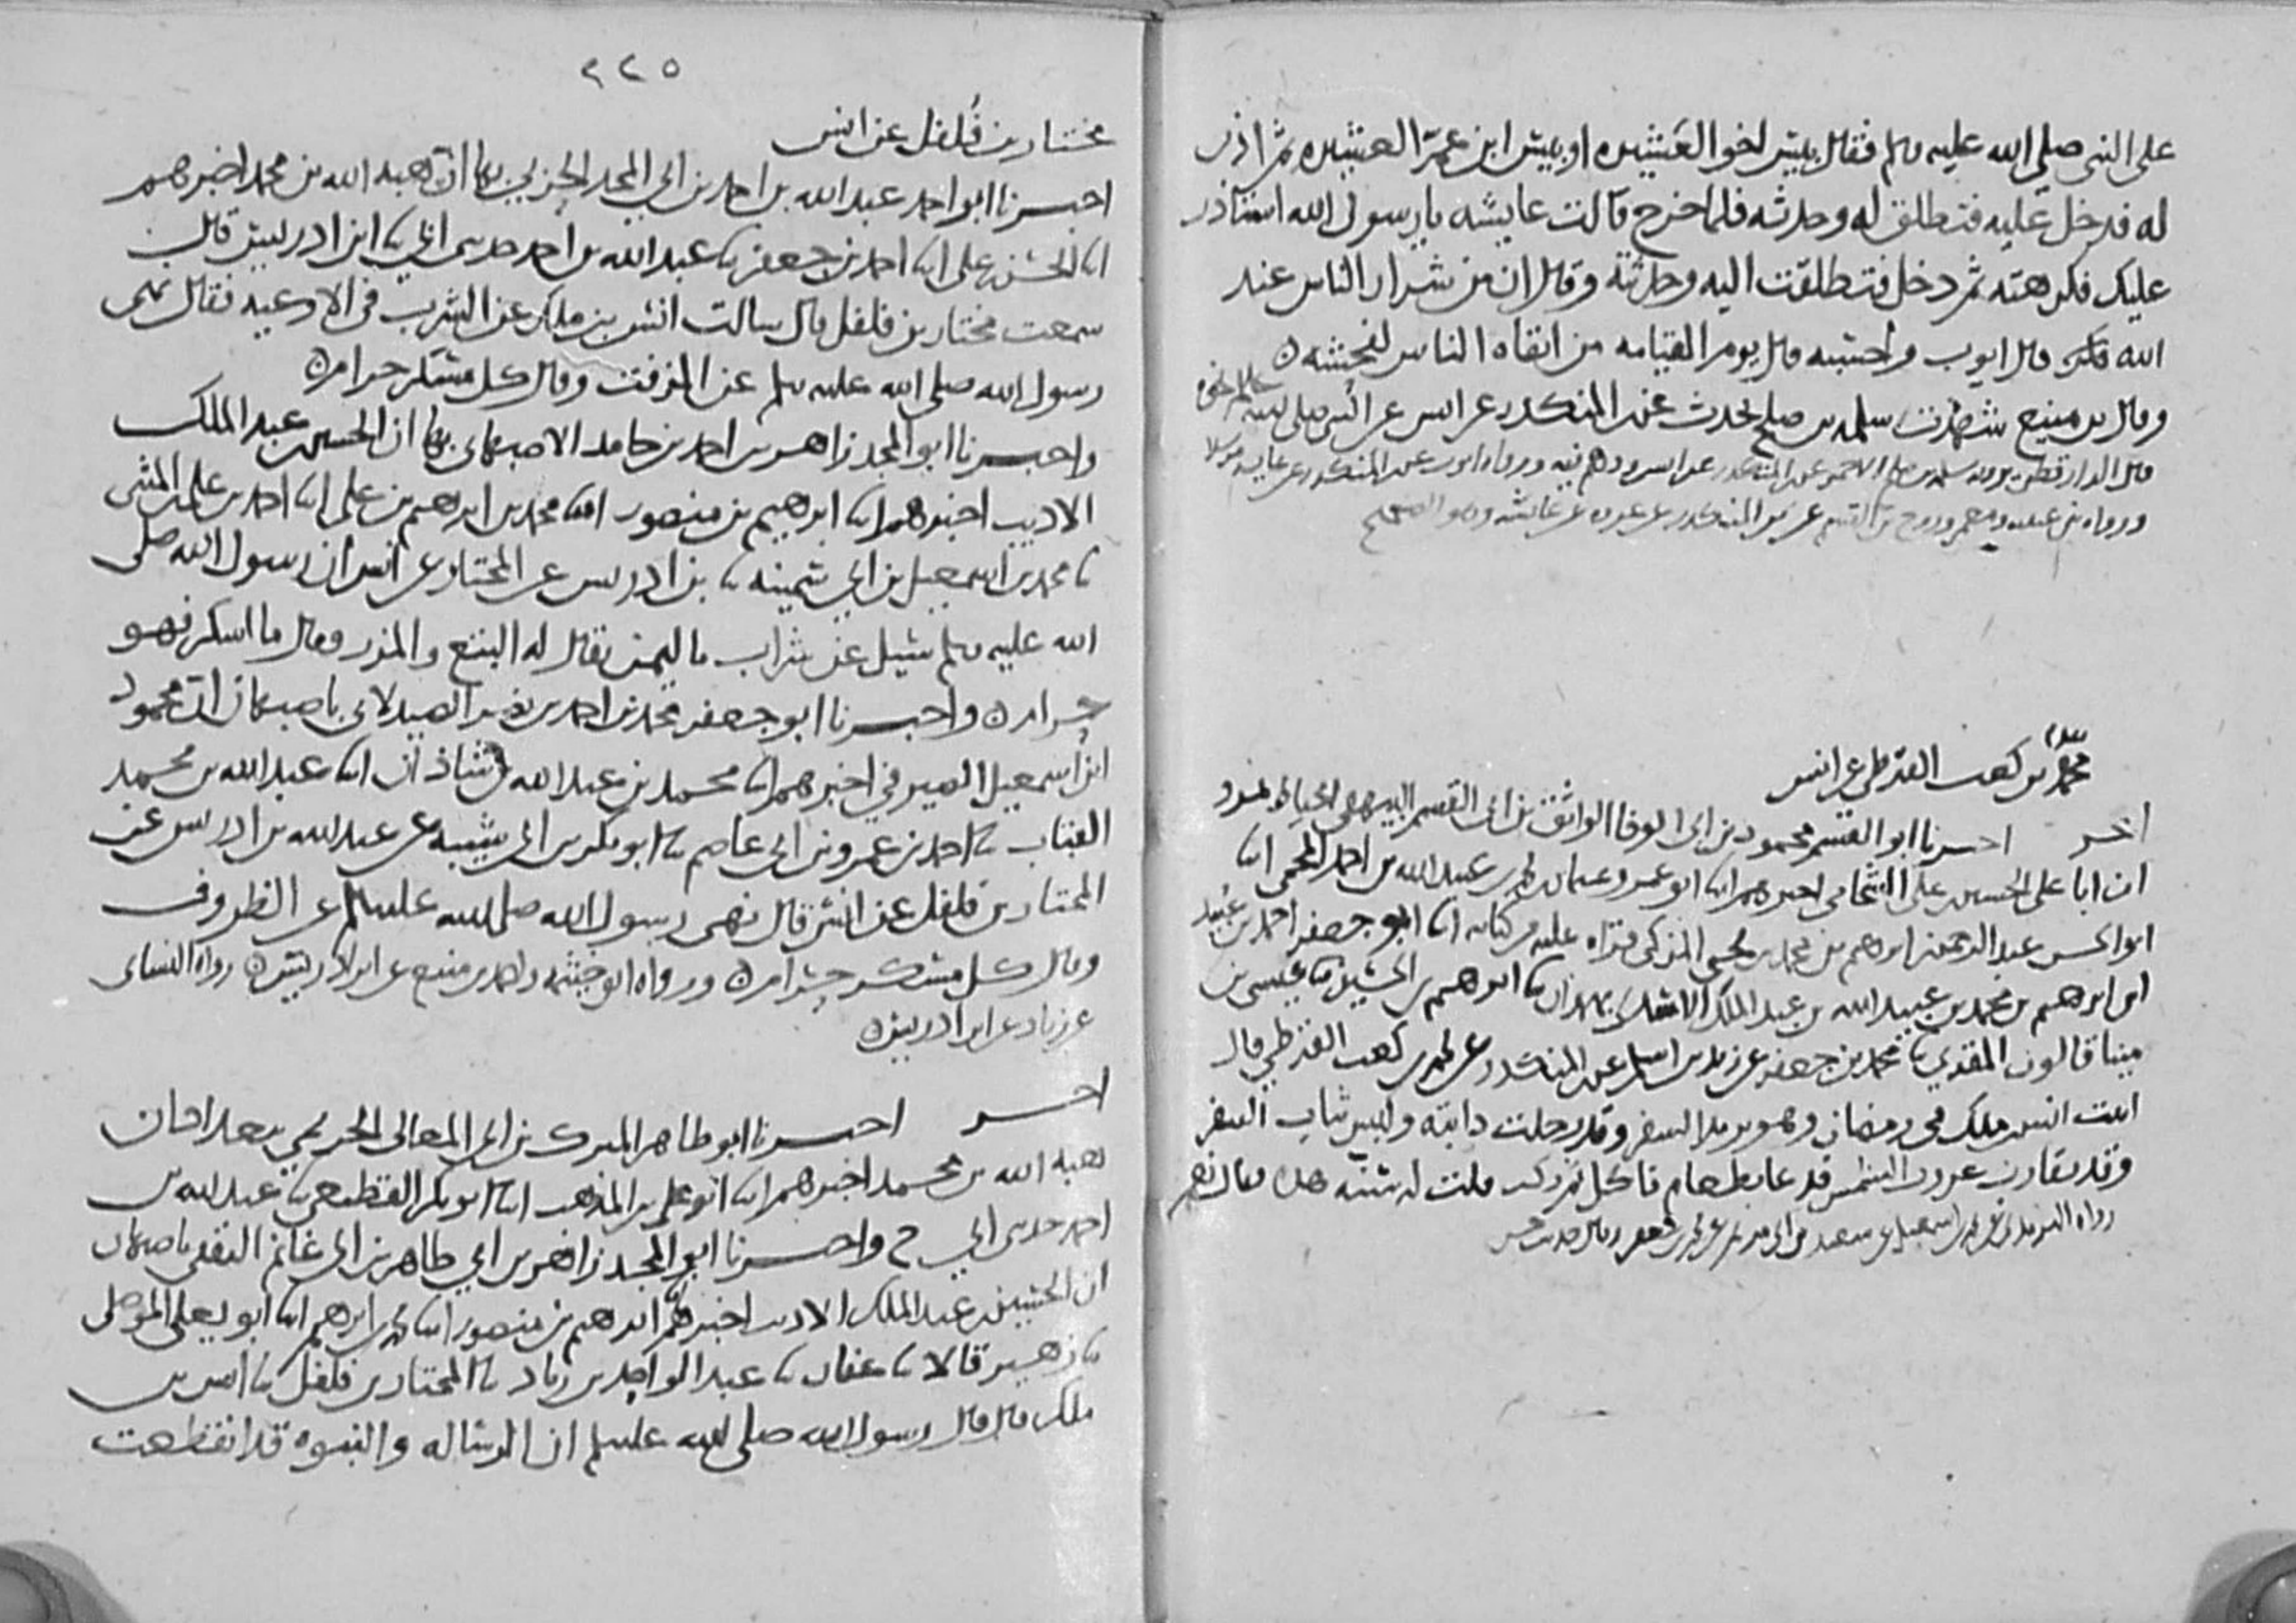 على النبي صلى الله عليه وسلم فقال بيس اخو العشيره او بيس ابن عمر العشيره ثم اذن
له فدخل عليه فتطلق له وحدثه فلما خرج قالت عايشه يا رسول الله استاذن
عليك فكرهته ثم دخل فتطلقت اليه وحدثته وقال ان من شرار الناس عند
الله قال ايوب واحسبه قال يوم القيامه من اتقاه الناس لفحشه
وقال بن منيع سلمه بن صلح يحدث عن المنكدر عن انس عن النبي صلى الله عليه وسلم نحوه
قال الدارقطني يرويه سلمه بن صلح الاحمر عن المنكدر عن انس ووهم فيه ورواه ايوب عن المنكدر عن عايشه مرسلا
ورواه بن عيينه ومعمر وروح بن القسم عن بن المنكدر عن عروه عن عائشه وهو الصحيح
محمد بن كعب القرظي عن انس
اخر احبرنا ابو القسم محمود بن ابي الوفا الواثق بن ابي القسم البيهقي
ان ابا علي الحسين بن علي الشحامي اخبرهم ابنا ابو عمرو عثمان بن محمد بن عبيد الله بن احمد المحمي ابنا
ابو الحسن عبد الرحمن بن ابرهيم بن محمد بن يحيى المزكي قراه عليه من كتابه ابنا ابو جعفر احمد بن عبيد
ابن ابرهيم بن محمد بن عبيد الله بن عبد الملك الاسدي بهمذان ثنا ابرهيم بن الحسين ثنا عيسى بن
مينا قالون المقري ثنا محمد بن جعفر عن زيد بن اسلم عن المنكدر عن محمد بن كعب القرظي قال
اتيت انس بن ملك في رمضان وهو يريد السفر وقد رحلت دابته ولبس ثياب السفر
وقد تقارب غروب الشمس فدعا بطعام فاكل ثم ركب فقلت له سنه هذا فقال نعم
رواه الترمذي عن محمد بن اسمعيل عن سعيد بن ابي مريم عن محمد بن جعفر وقال حديث حسن
٢٢٥
مختار بن فلفل عن انس
احبرنا ابو احمد عبد الله بن احمد بن ابي المجد الحربي بها ان هبه الله بن محمد اخبرهم
ابنا الحسن بن علي ابنا احمد بن جعفر ثنا عبد الله بن احمد حدثني ابي ثنا ابن ادريس قال
سمعت مختار بن فلفل قال سالت انس بن ملك عن الشرب في الاوعيه فقال نهى
رسول الله صلى الله عليه وسلم عن المزفت وقال كل مسكر حرام
واحبرنا ابو المجد زاهر بن احمد بن حامد الاصبهاني بها ان الحسين بن عبد الملك
الاديب اخبرهم ابنا ابرهيم بن منصور ابنا محمد بن ابرهيم بن علي ابنا احمد بن علي بن المثنى
ثنا محمد بن اسمعيل بن ابي سمينه ثنا بن ادريس عن المختار عن انس ان رسول الله صلى
الله عليه وسلم سيل عن شراب باليمن يقال له البتع والمزر وقال ما اسكر فهو
حرام واحبرنا ابو جعفر محمد بن احمد بن نصر الصيدلاني باصبهان ان محمود
ابن اسمعيل الصيرفي اخبرهم ابنا محمد بن عبد الله بن شاذان ابنا عبد الله بن محمد
القباب ثنا احمد بن عمرو بن ابي عاصم ثنا ابو بكر بن ابي شيبه ثنا عبد الله بن ادريس عن
المختار بن فلفل عن انس قال نهى رسول الله صلى الله عليه وسلم عن الظروف
وقال كل مسكر حرام ورواه ابو خيثمه واحمد بن منيع عن ابن ادريس رواه النسائي
عن زياد عن ابن ادريس
اخر احبرنا ابو طاهر المبرك بن ابي المعالي الحريمي ببغداد ان
هبه الله بن محمد اخبرهم ابنا ابو علي بن المذهب ابنا ابو بكر القطيعي ثنا عبد الله بن
احمد حدثني ابي ح واحبرنا ابو المجد زاهر بن ابي طاهر بن ابي غانم الثقفي باصبهان
ان الحسين بن عبد الملك الاديب اخبرهم ابنا ابرهيم بن منصور ابنا محمد بن ابرهيم ابنا ابو يعلى الموصلي
ثنا زهير قالا ثنا عفان ثنا عبد الواحد بن زياد ثنا المختار بن فلفل ثنا انس بن
ملك قال قال رسول الله صلى الله عليه وسلم ان الرساله والنبوه قد انقطعت